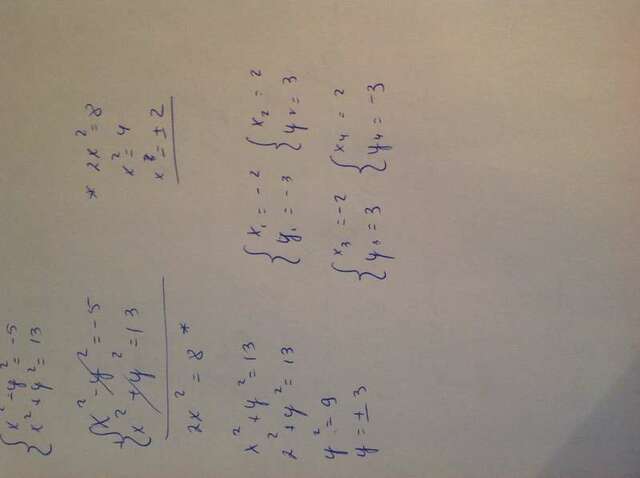 { x² - y² = -5
x² + y² = 13
{ x² - y² = -5
+ x² + y² = 13
2x² = 8 *
* 2x² = 8
x² = 4
x = ± 2
x² + y² = 13
2² + y² = 13
y² = 9
y = ± 3
{ x₁ = -2
y₁ = -3
{ x₂ = 2
y₂ = 3
{ x₃ = -2
y₃ = 3
{ x₄ = 2
y₄ = -3